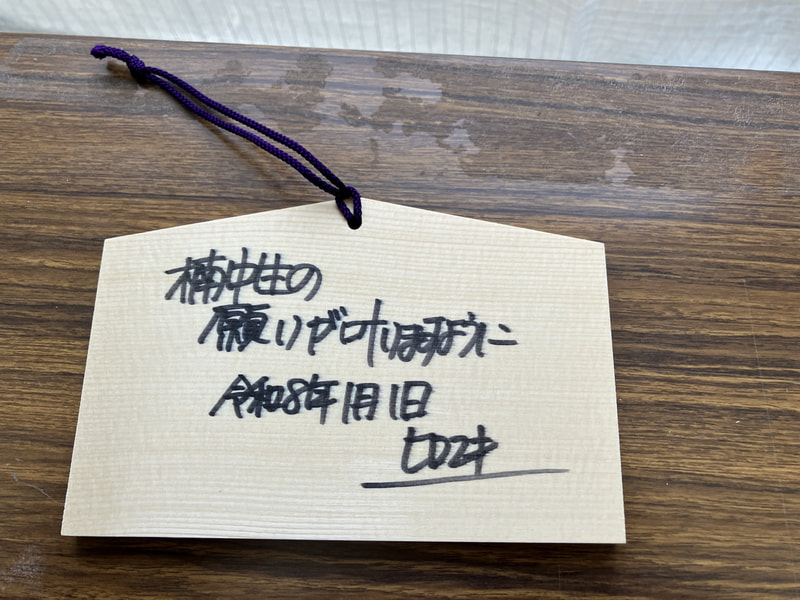 楠中生の
願いが叶いますように
令和8年1月1日
ヒロユキ